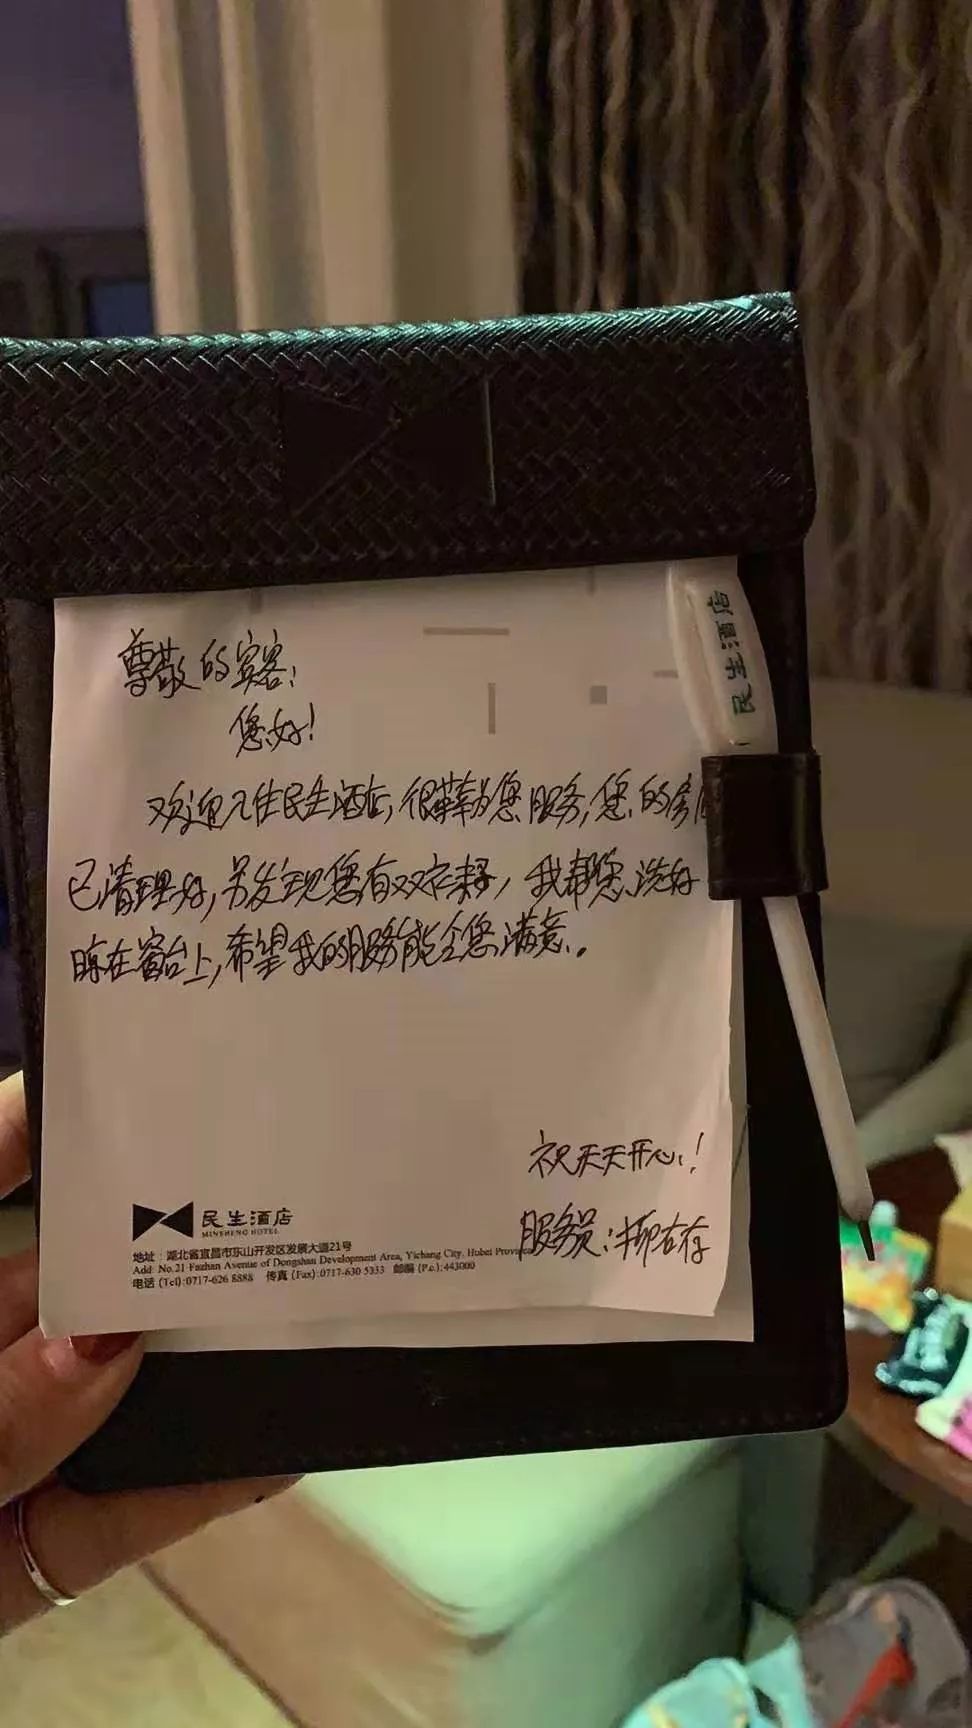 民生酒店
尊敬的宾客:
您好!
欢迎入住民生酒店,很荣幸为您服务,您的房
已清理好,另发现您有双衣袜,我帮您洗好
晾在窗台上,希望我的服务能令您满意。
祝天天开心!
服务员:
民生酒店
MINSHENG HOTEL
地址:湖北省宜昌市东山开发区发展大道21号
Add: No.21 Fazhan Avenue of Dongshan Development Area, Yichang City, Hubei Province
电话 (Tel):0717-626 8888 传真 (Fax):0717-630 5333 邮编 (P.c):443000